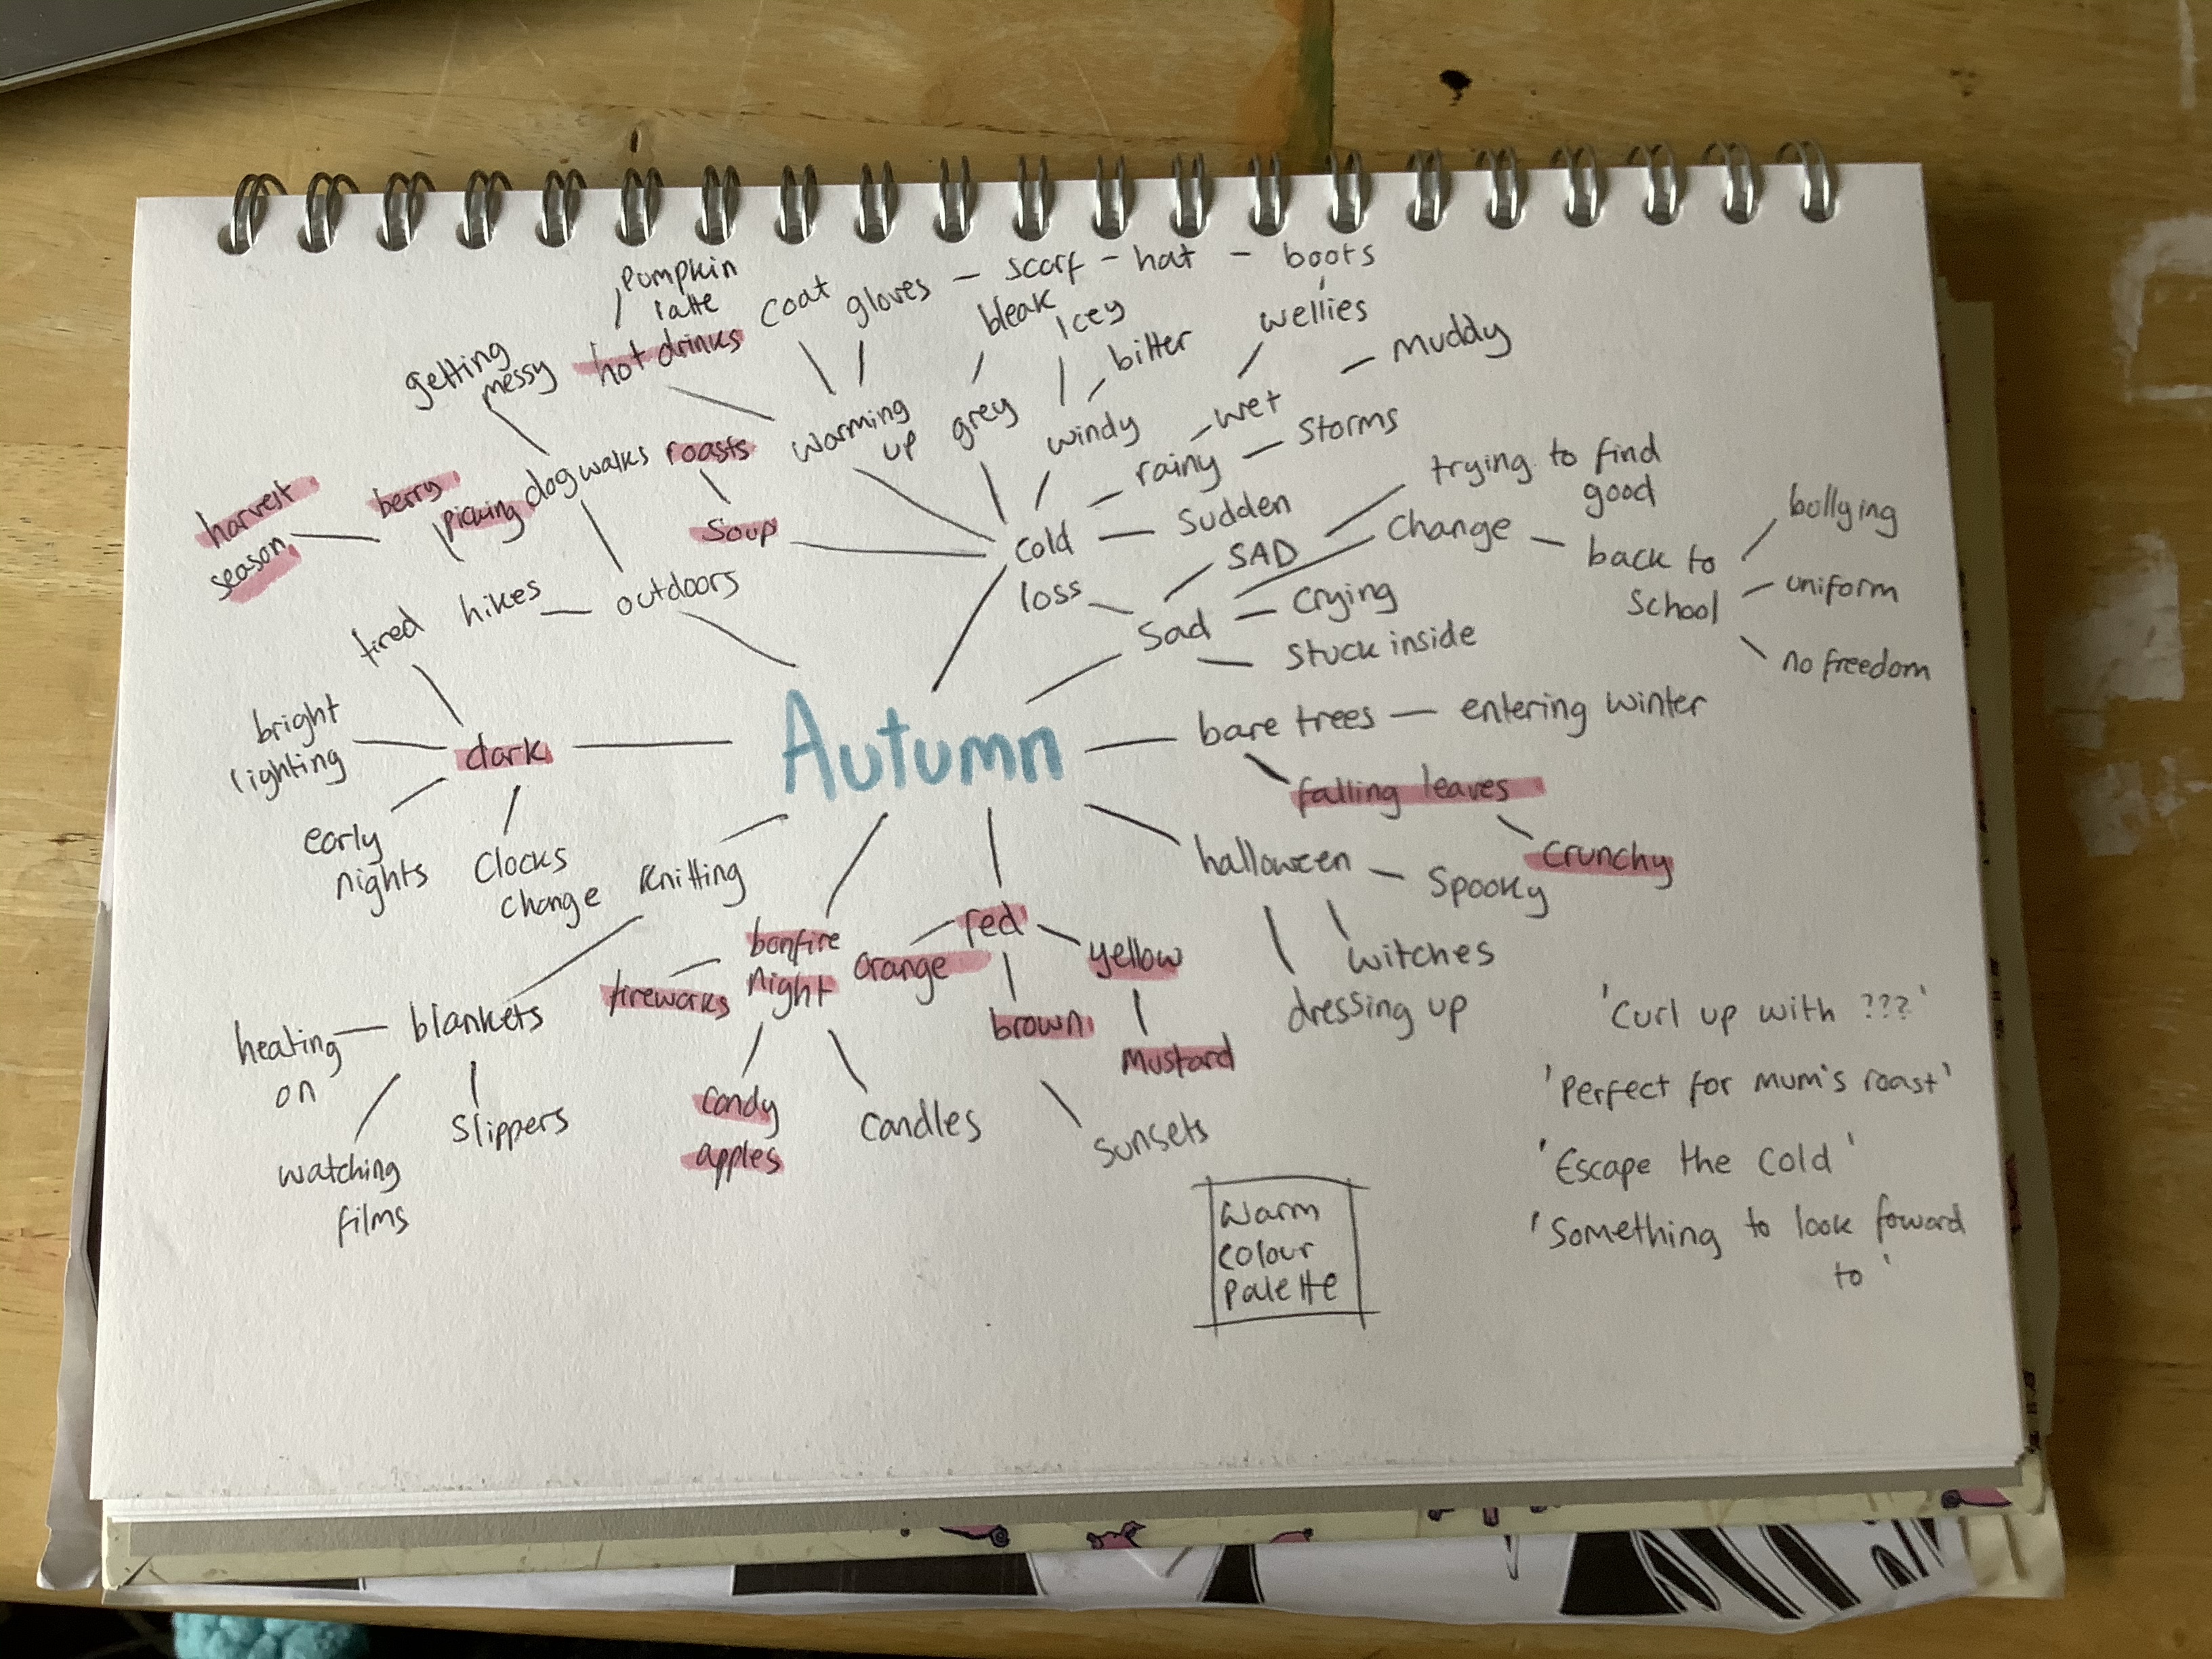 Pumpkin
latte
hot drinks
coat
gloves - scarf - hat - boots
bleak
Icey
bitter
wellies
muddy
getting
messy
warming
up
grey
windy
wet
rainy
storms
Sudden
harvest
season
berry
picking
dog walks
roasts
Soup
cold
loss
SAD
trying to find
good
Change
back to
School
bullying
uniform
no freedom
tired
hikes
outdoors
Sad
Crying
Stuck inside
bright
lighting
dark
Autumn
bare trees — entering winter
falling leaves
Crunchy
early
nights
Clocks
change
Knitting
halloween
Spooky
witches
dressing up
bonfire
night
fireworks
red
orange
yellow
brown
Mustard
heating
on
blankets
Slippers
watching
films
Candy
apples
Candles
Sunsets
Warm
Colour
Palette
'Curl up with ???'
'Perfect for mum's roast'
'Escape the cold'
'Something to look foward
to'